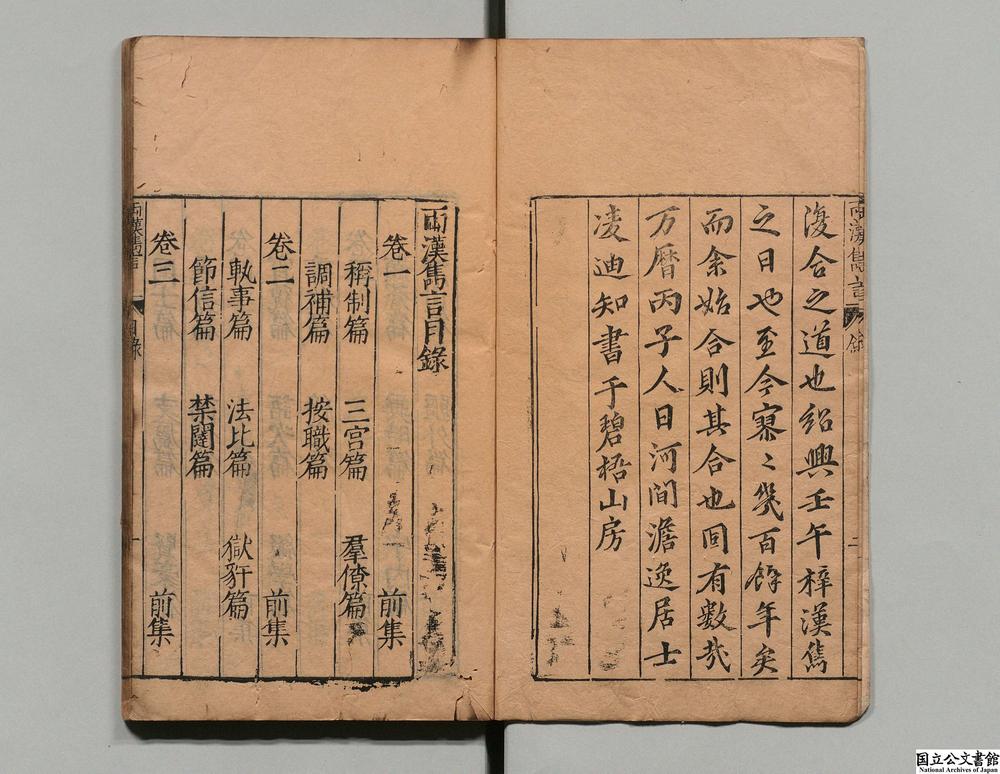 復合之道也紹興壬午梓漢雋
之日也至今寥〻幾百餘年矣
而余始合則其合也固有數哉
万曆丙子人日河間澹逸居士
凌迪知書于碧梧山房
兩漢雋言 叙 二
兩漢雋言目錄
卷一 前集
稱制篇 三宮篇 羣僚篇
調補篇 按職篇
卷二 前集
執事篇 法比篇 獄犴篇
節信篇 禁闥篇
卷三 前集
兩漢雋言 目錄 一
国立公文書館
National Archives of Japan